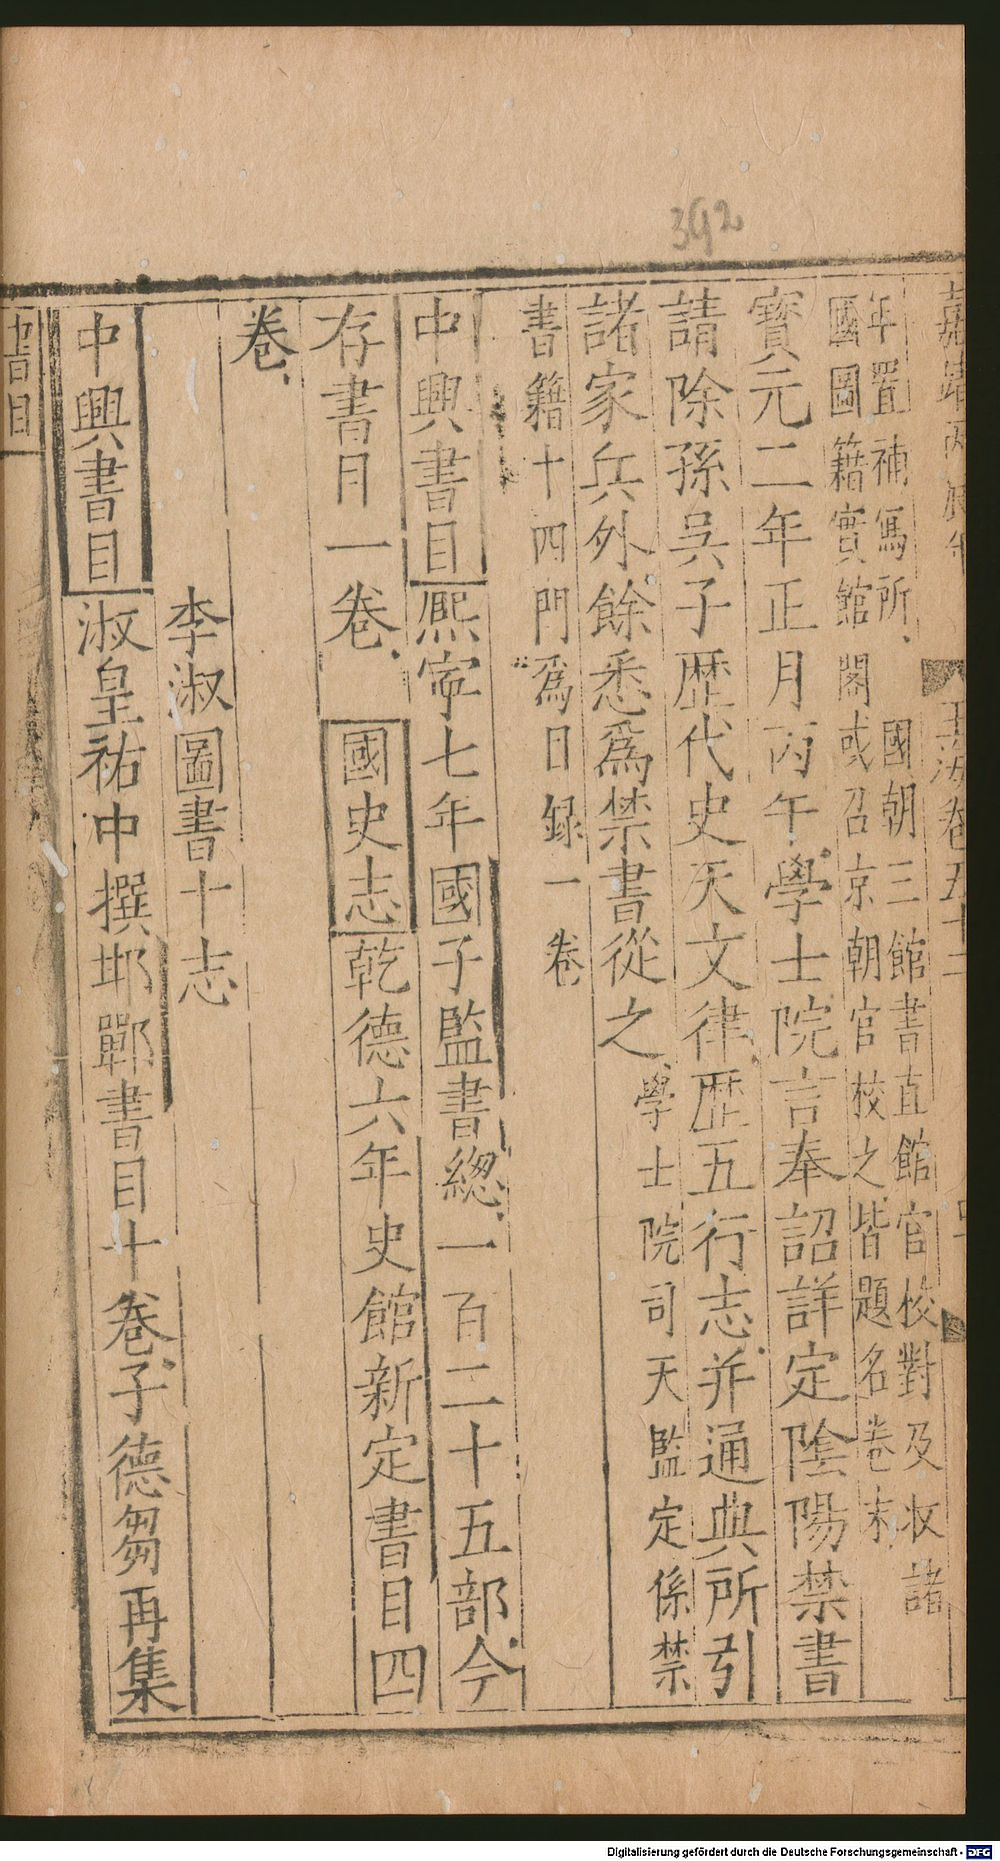 392
年置補寫所
國朝三館書直館官校對及收諸
國圖籍實館閣或召京朝官校之皆題名卷末
寶元二年正月丙午學士院言奉詔詳定陰陽禁書
請除孫吳子歷代史天文律歷五行志并通典所引
諸家兵外餘悉爲禁書從之
學士院司天監定係禁
書籍十四門爲目録一卷
中興書目熈寜七年國子監書緫一百二十五部今
存書目一卷
國史志乾德六年史館新定書目四
卷
李淑圖書十志
中興書目淑皇祐中撰邯鄲書目十卷子德芻再集
書目
Digitalisierung gefördert durch die Deutsche Forschungsgemeinschaft - DFG